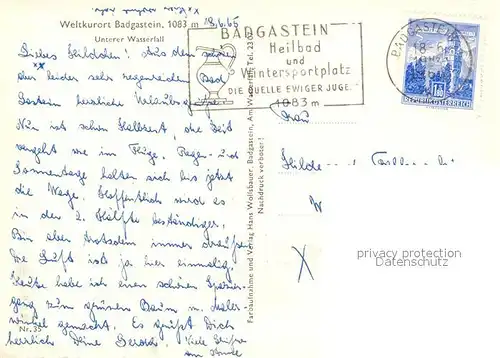 Weltkurort Badgastein, 1083 m
Unterer Wasserfall
18.6.65
Liebes Hildchen! Aus dem schönen
xx bei leider sehr regenreichem Bad
Gastein herzliche Urlaubsgrüße.
Nun ist schon Halbzeit, die Zeit
vergeht wie im Fluge. Regen- und
Sonnentage halten sich bis jetzt
die Wage. Hoffentlich wird es
in der 2. Hälfte beständiger.
Bin aber trotzdem immer draußen
Die Luft ist ja hier einmalig.
Heute habe ich einen schönen Spazier-
gang zum grünen Baum u. Maler-
winkel gemacht. Es grüßt Dich
herzlich Deine
Viele Grüße
Nr. 35
Farbaufnahme und Verlag Hans Wolfsbauer, Badgastein, Am Wasserfall, Tel. 23
Nachdruck verboten!
BADGASTEIN
Heilbad
und
Wintersportplatz
DIE QUELLE EWIGER JUGE
1083 m
BADGASTEIN
18-6
REPUBLIK ÖSTERREICH
Frau
Hilde
W
privacy protection
Datenschutz